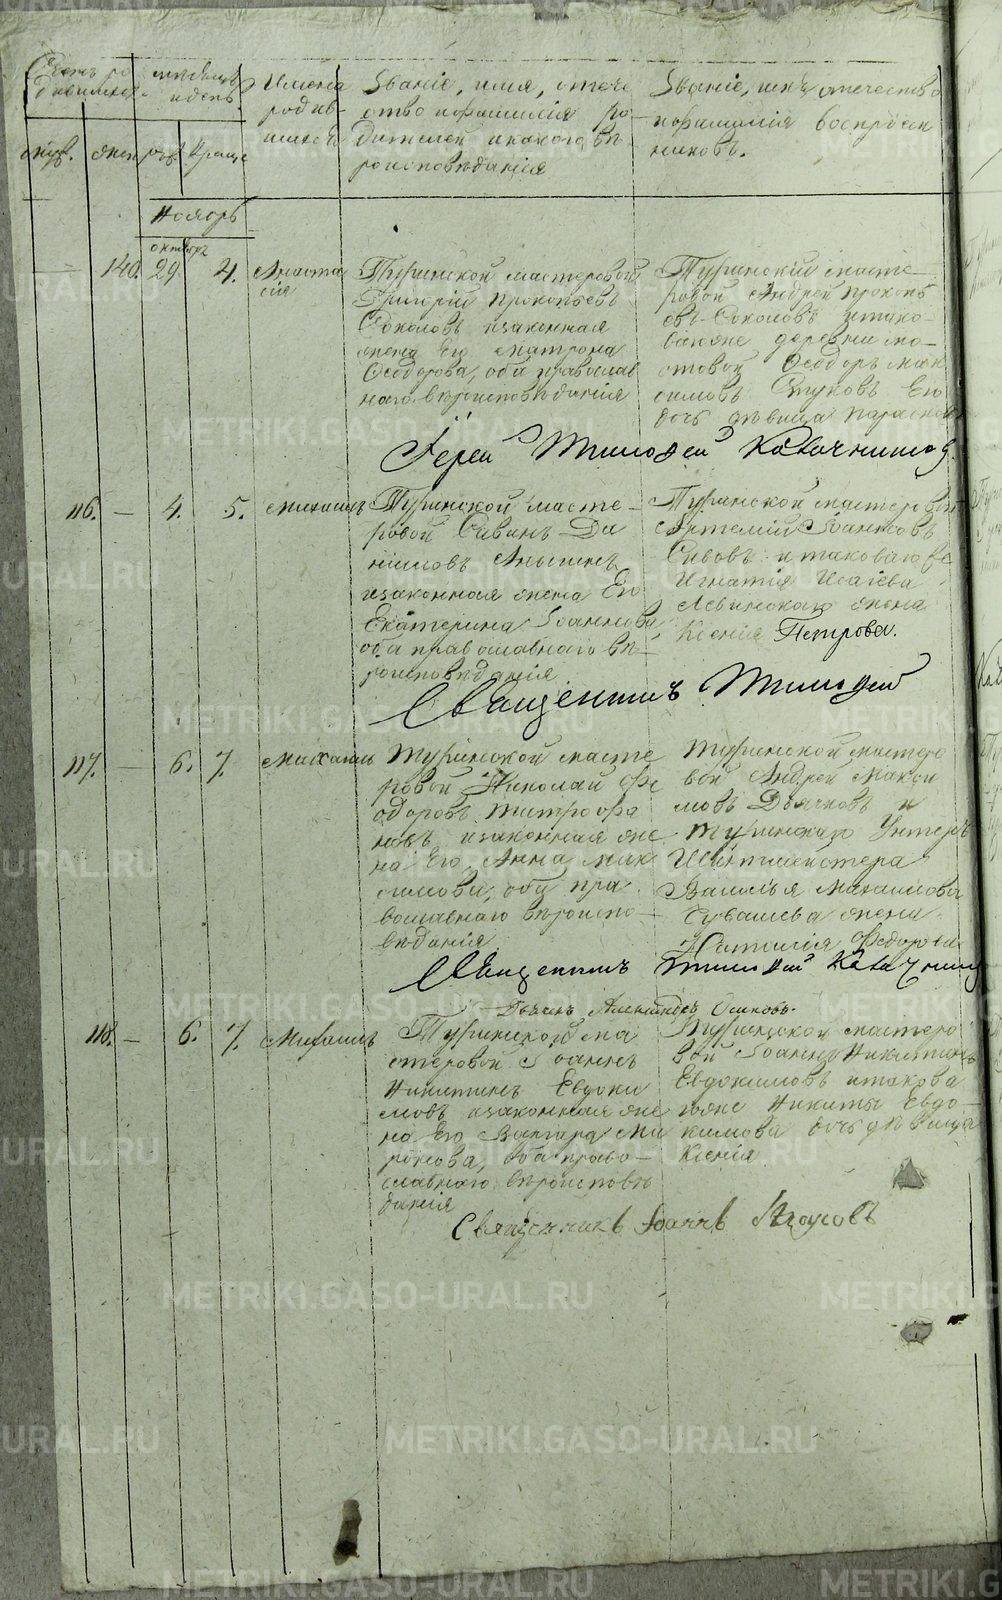 Счетъ ро
дившихся
мѣсяцъ
и день
Имена
родив-
шихся
Званіе, имя, отече
ство и фамилія ро-
дителей и какого вѣ
роисповѣданія
Званіе, имя, отечество
и фамилія воспріем
никовъ.
муж. жен. рож. крещ.
Ноябрь
октябрь
— 140. 29. 4. Анаста
сія
Туринской мастеровой
Григорій Прокопьевъ
Соколовъ и законная
жена его Матрона
Ѳеодорова, оба православ
наго вѣроисповѣданія
Туринскій масте-
ровой Андрей Прокопь
евъ Соколовъ и тако-
ваго же деревни
Ѳеодоръ Мак
симовъ его
дочь дѣвица Параскев
Іерей Тимофей
116. — 4. 5. Михаилъ
Туринской масте-
ровой Иванъ Да
ниловъ
и законная жена его
Екатерина Іоаннова
оба православнаго вѣ-
роисповѣданія
Туринской мастеровой
Артемій Іоанновъ
Сивовъ и таковаго же
Игнатія Исаіева
Левинскаго жена
Ксенія Петрова.
Священникъ Тимофей
117. — 6. 7. Михаилъ
Туринской масте
ровой Николай Ѳе
одоровъ Митрофа
новъ и законная же
на его Анна Мак
симова, оба пра
вославнаго вѣроиспо-
вѣданія
Туринской мастеро
вой Андрей Макси
мовъ Дьячковъ и
Туринскаго Унтеръ
Шихтмейстера
Василья Михаилова
Чувашева жена
Наталія Федорова
Священникъ Тимофей
Дьячекъ Александръ
118. — 6. 7. Михаилъ
Туринской ма
стеровой Іоаннъ
Никитинъ Евдоки
мовъ и законная же
на его Варвара Ми
ронова, оба право-
славнаго вѣроисповѣ
данія
Туринской мастеро
вой Іоаннъ Никитинъ
Евдокимовъ и такова
гоже Никиты Евдо-
кимова дочь дѣвица
Ксенія
Священникъ Іоаннъ
METRIKI.GASO-URAL.RU